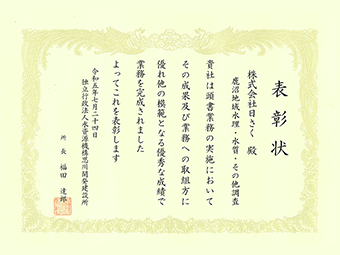 表彰状
株式会社日さく 殿
鹿沼地域水理・水質・その他調査
貴社は頭書業務の実施において
その成果及び業務への取組方に
優れ他の模範となる優秀な成績で
業務を完成されました
よってこれを表彰します
令和五年七月二十四日
独立行政法人水資源機構思川開発建設所
所長 福田 達郎